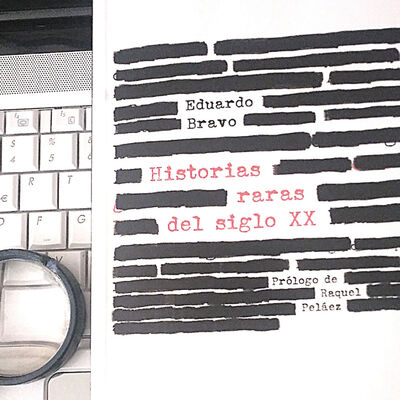 Eduardo
Bravo
Historias
raras
del siglo XX
Prólogo de
Raquel
Peláez
$
4
%
5
€
R
T
D
F
G